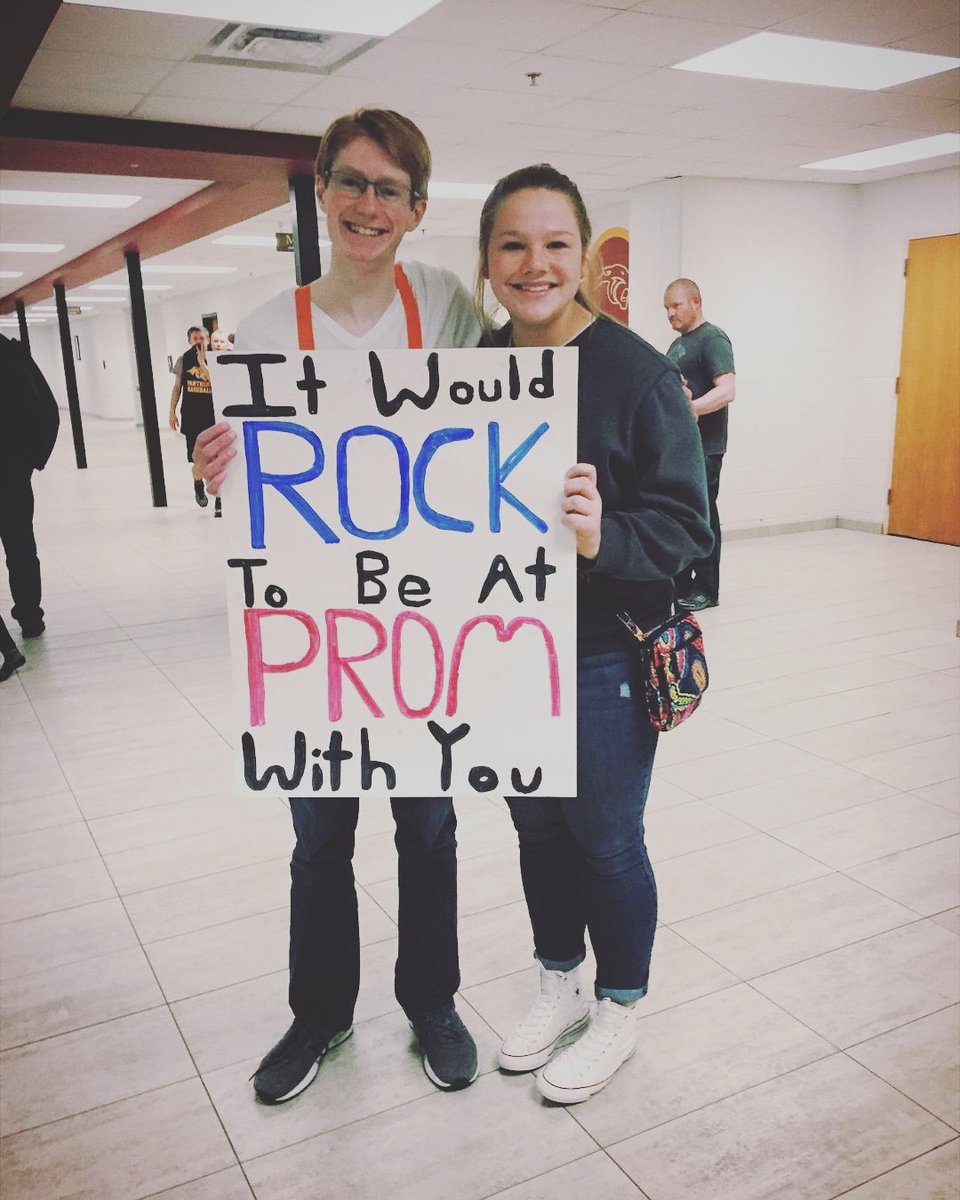 It Would
ROCK
To Be At
PROM
With You